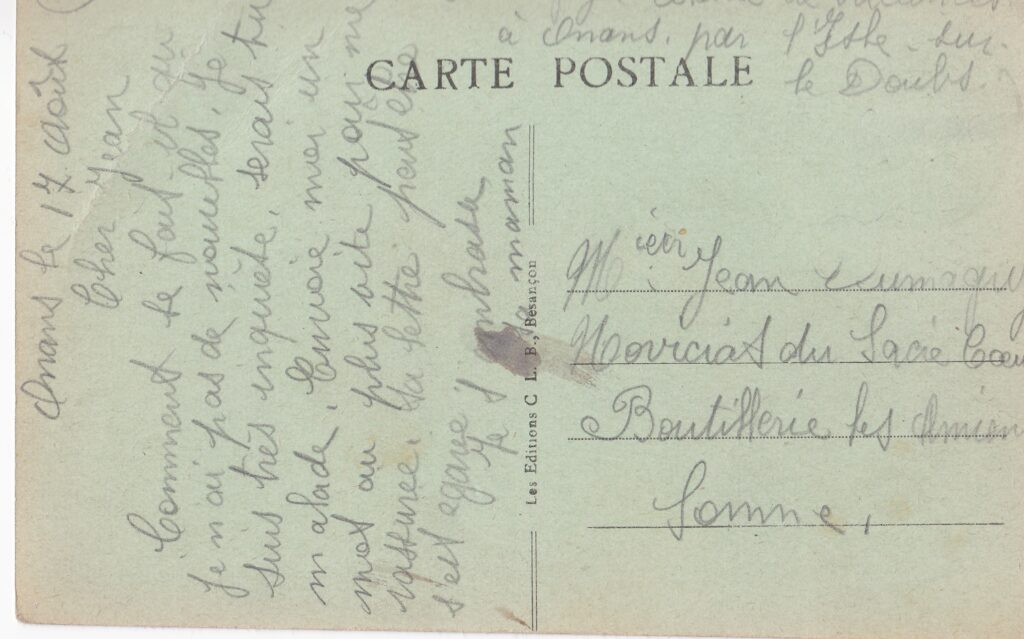 à Onans. par l'Isle-sur-
le Doubs.
CARTE POSTALE
Onans le 17 Août
Cher Jean
Comment se fait-il que
je n'ai pas de nouvelles. Je
suis très inquiète, serais tu
malade. Envoie moi un
mot au plus vite pour me
rassurer. Ta lettre peut être
s'est égarée
Je t'embrasse
ta maman
Les Editions C L. B., Besançon
Jean
du Sacré Coeu
Boutillerie les Amien
Somme,